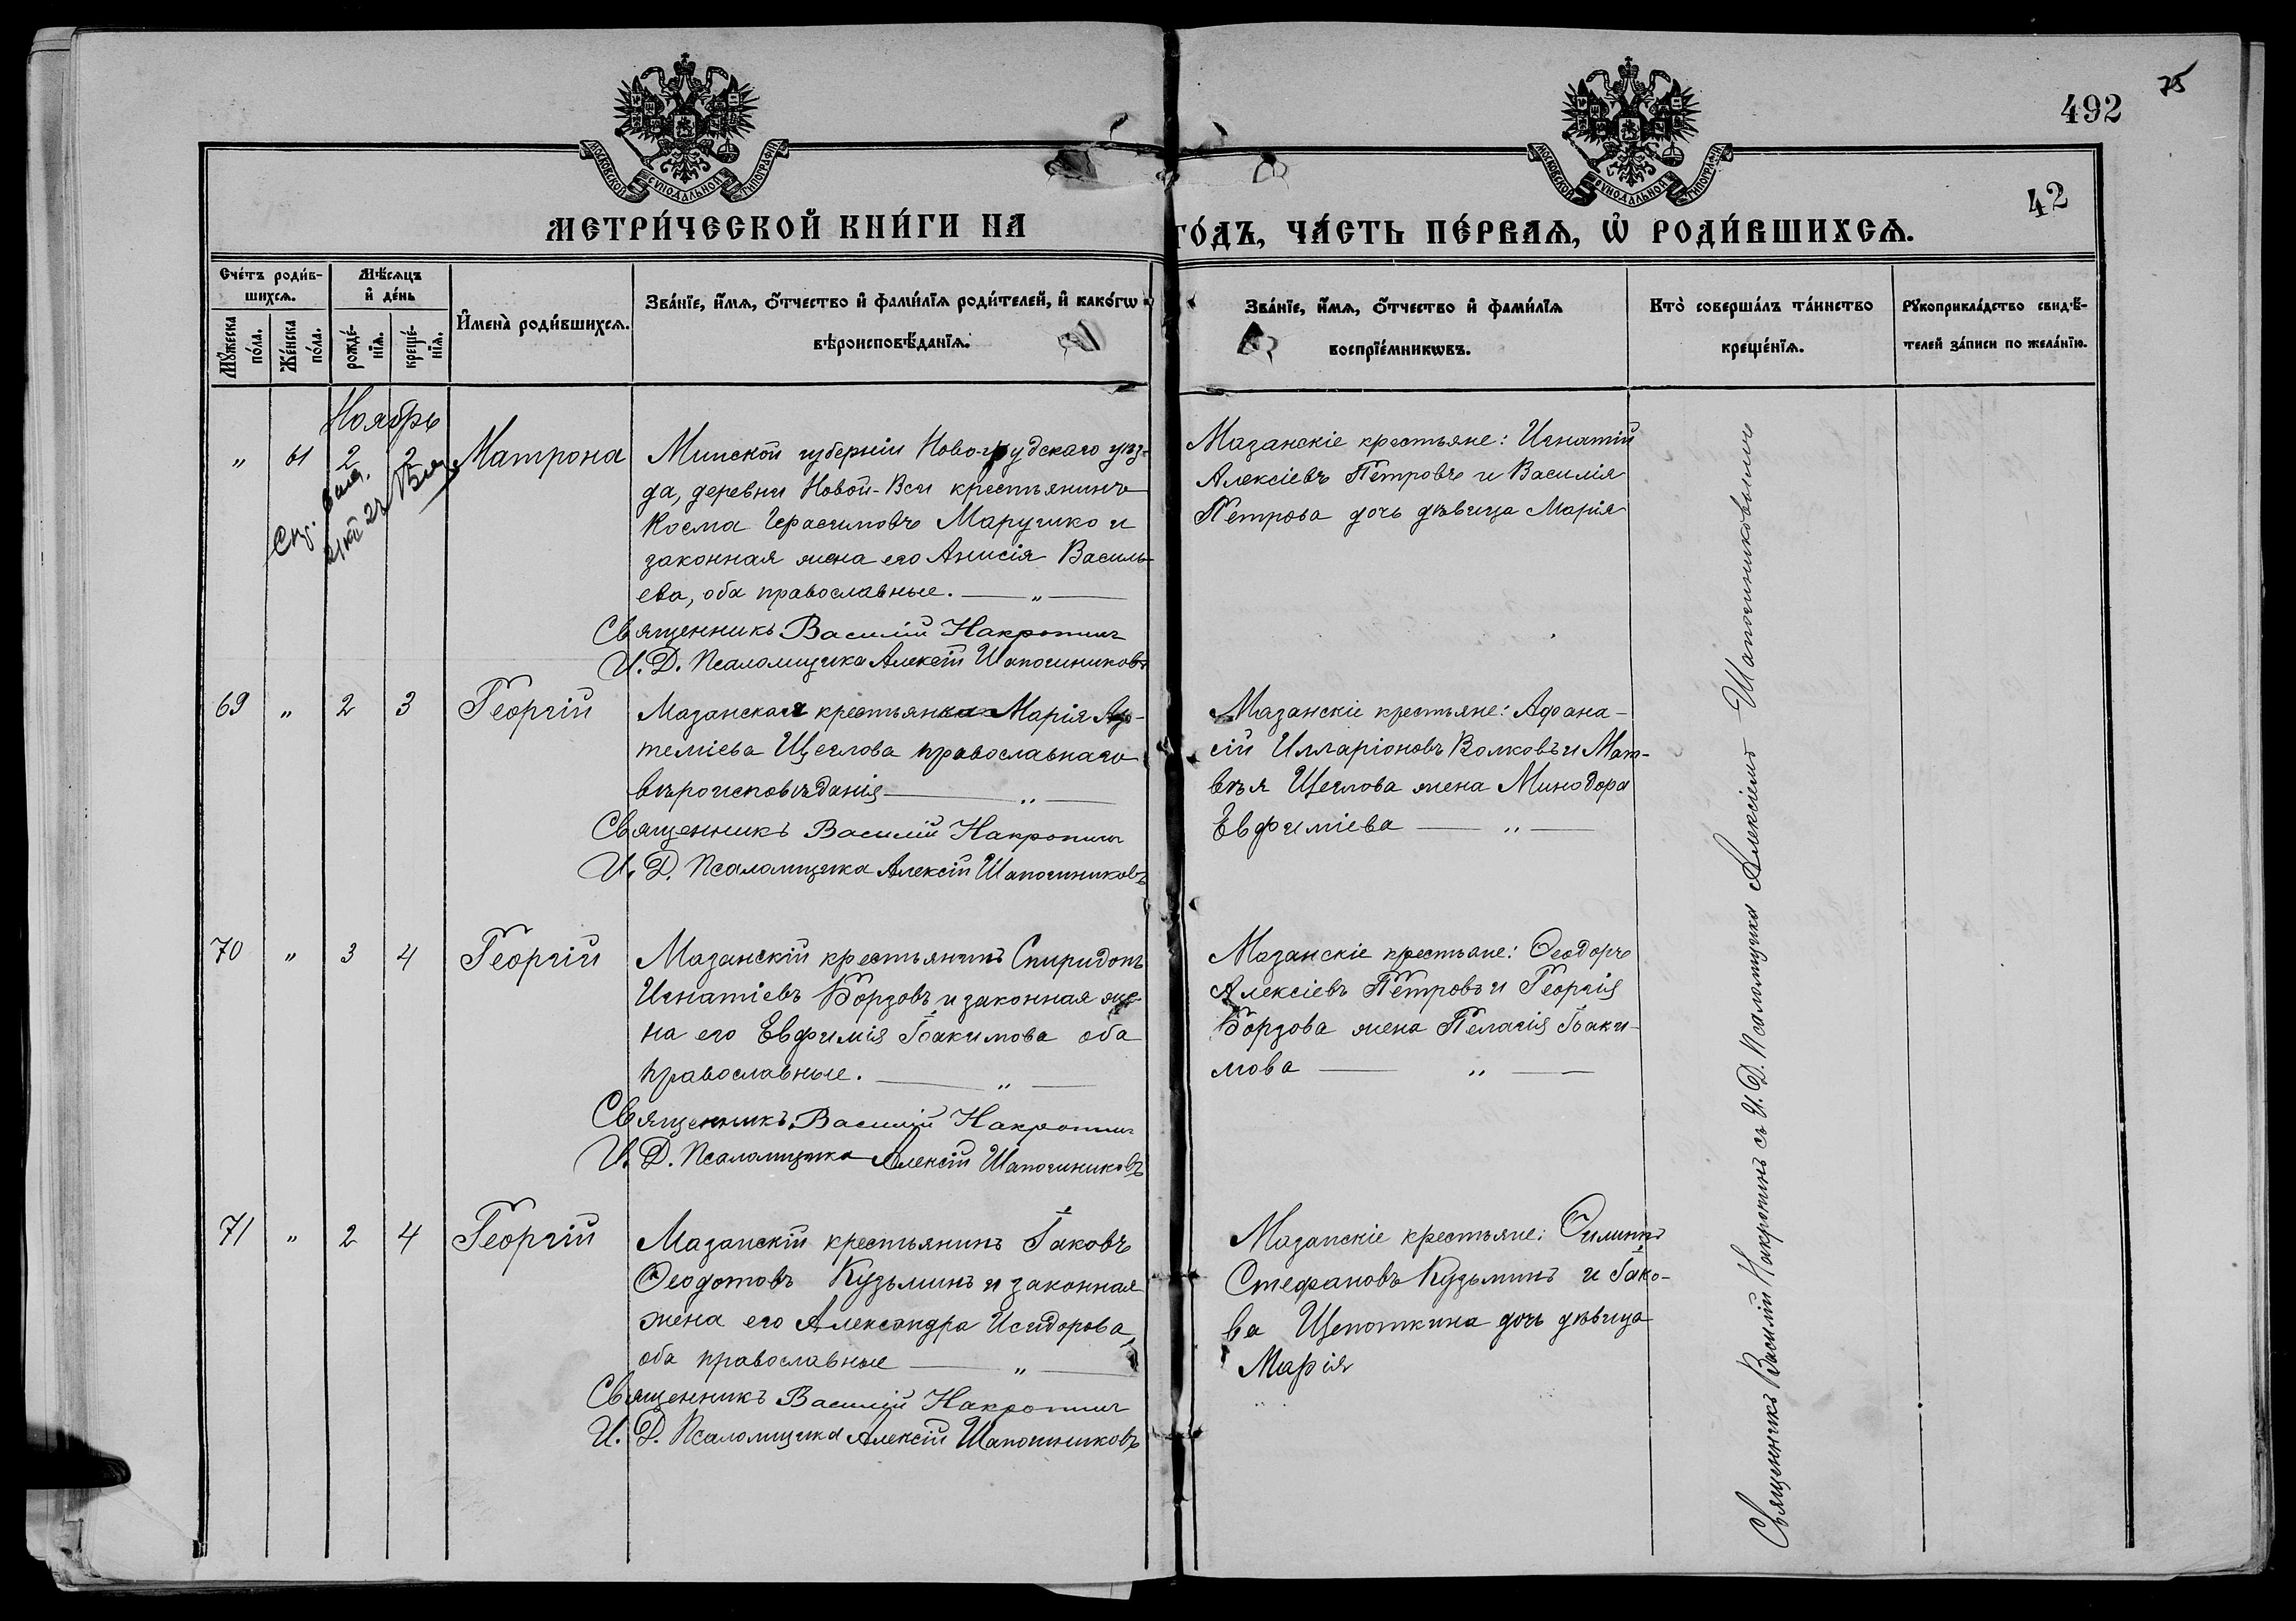 75
492
42
МОСКОВСКОЙ СѴНОДАЛЬНОЙ ТИПОГРАФІИ
МОСКОВСКОЙ СѴНОДАЛЬНОЙ ТИПОГРАФІИ
МЕТРИ́ЧЕСКОЙ КНИ́ГИ НА
ГО́ДЪ, ЧА́СТЬ ПЕ́РВАѦ, Ѡ҆ РОДИ́ВШИХСѦ.
Сче́тъ роди́в-
шихсѧ.
Мѣ́сѧцъ
и҆ де́нь
Мꙋ́жеска по́ла.
Же́нска по́ла.
рожде́-
нїѧ.
креще́-
нїѧ.
И҆мена̀ роди́вшихсѧ.
Зва́нїе, и҆́мѧ, ѻ҆́тчество и҆ фами́лїѧ роди́телей, и҆ како́гѡ
вѣроисповѣ́данїѧ.
Зва́нїе, и҆́мѧ, ѻ҆́тчество и҆ фами́лїѧ
воспрїе́мникѡвъ.
Кто̀ соверша́лъ та́инство
креще́нїѧ.
Рꙋкоприкла́дство свидѣ́-
телей за́писи по жела́нїю.
Ноябрь
„ 61 2 2 Матрона
Минской губерніи Новогрудскаго уѣз-
да, деревни Новой-Вси крестьянинъ
Косма Герасимовъ Марушко и
законная жена его Анисія Василь-
ева, оба православные. — „ —
Священникъ Василій Накропинъ
И. Д. Псаломщика Алексій Шапошниковъ
Мазанскіе крестьяне: Игнатій
Алексіевъ Петровъ и Василія
Петрова дочь дѣвица Марія
69 „ 2 3 Георгій
Мазанская крестьянка Марія Ар-
теміева Щеглова православнаго
вѣроисповѣданія — „ —
Священникъ Василій Накропинъ
И. Д. Псаломщика Алексій Шапошниковъ
Мазанскіе крестьяне: Афана-
сій Илларіоновъ Волковъ и Мат-
вѣя Щеглова жена Минодора
Евфиміева — „ —
70 „ 3 4 Георгій
Мазанскій крестьянинъ Спиридонъ
Игнатіевъ Борзовъ и законная же-
на его Евфимія Іоакимова оба
православные. — „ —
Священникъ Василій Накропинъ
И. Д. Псаломщика Алексій Шапошниковъ
Мазанскіе крестьяне: Ѳеодоръ
Алексіевъ Петровъ и Георгія
Борзова жена Пелагія Іоаки-
мова — „ —
71 „ 2 4 Георгій
Мазанскій крестьянинъ Іаковъ
Ѳеодотовъ Кузьминъ и законная
жена его Александра Исидорова,
оба православные — „ —
Священникъ Василій Накропинъ
И. Д. Псаломщика Алексій Шапошниковъ
Мазанскіе крестьяне:
Стефановъ Кузьминъ и Іако-
ва Щепоткина дочь дѣвица
Марія
Священникъ Василій Накропинъ съ И. Д. Псаломщика Алексіемъ Шапошниковымъ